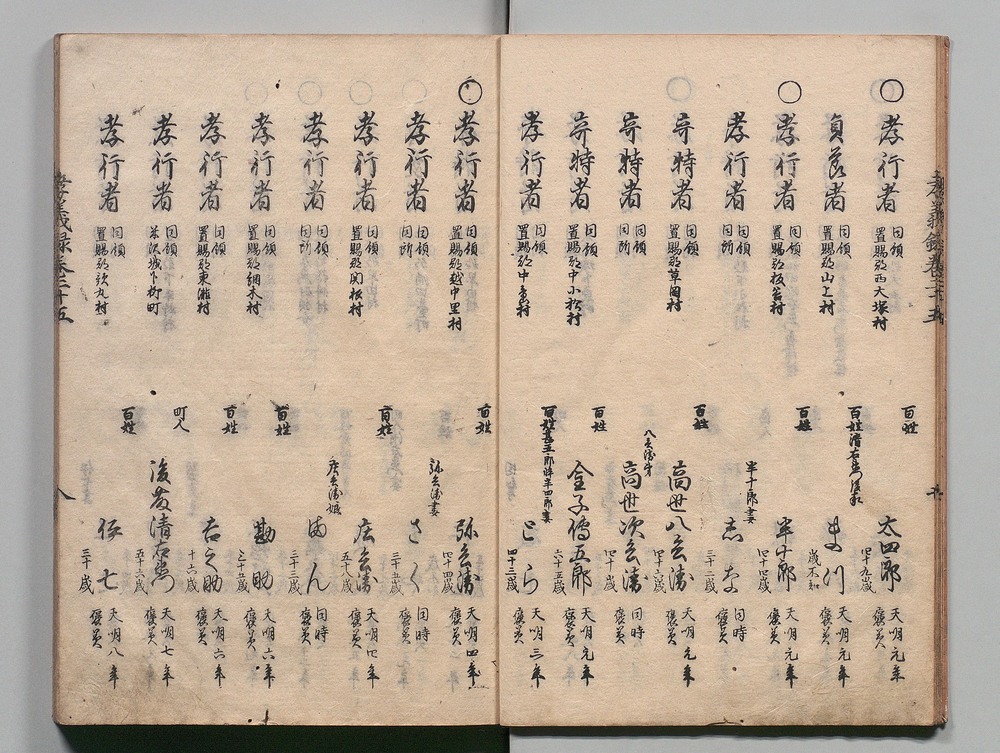 孝行者 同領 置賜郡西大塚村 百姓 太四郎 四十九歳 天明元年 褒美
貞節者 同領 置賜郡山上村 百姓清右衛門後家 まつ 歳不知 天明元年 褒美
孝行者 同領 置賜郡板谷村 百姓 半十郎 四十四歳 天明元年 褒美
孝行者 同領 同所 半十郎妻 志な 三十二歳 同時 褒美
奇特者 同領 置賜郡草岡村 百姓 高世八兵衛 四十六歳 天明元年 褒美
奇特者 同領 同所 八兵衛弟 高世次兵衛 四十歳 同時 褒美
奇特者 同領 置賜郡中小松村 百姓 金子傳五郎 六十五歳 天明元年 褒美
孝行者 同領 置賜郡中 村 百姓 五郎 半四郎妻 とら 四十三歳 天明三年 褒美
孝行者 同領 置賜郡越中里村 百姓 弥兵衛 四十四歳 天明四年 褒美
孝行者 同領 同所 弥兵衛妻 さく 三十五歳 同時 褒美
孝行者 同領 置賜郡関根村 百姓 庄兵衛 五十歳 天明四年 褒美
孝行者 同領 同所 庄兵衛 まん 三十三歳 同時 褒美
孝行者 同領 置賜郡綱木村 百姓 勘助 三十五歳 天明六年 褒美
孝行者 同領 置賜郡東 村 百姓 吉之助 十六歳 天明六年 褒美
孝行者 同領 米沢城下 町 町人 後藤清右衛門 五十六歳 天明七年 褒美
孝行者 同領 置賜郡歌丸村 百姓 七 三十歳 天明八年 褒美
孝義録巻三十五
八